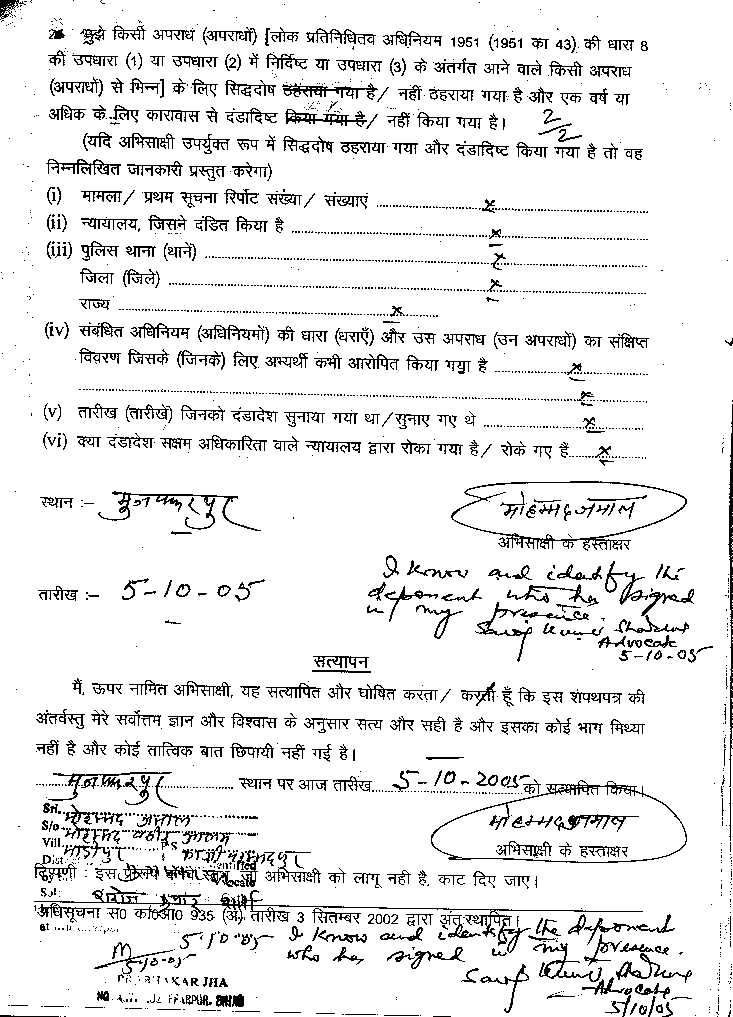 2. मुझे किसी अपराध (अपराधों) [लोक प्रतिनिधितव अधिनियम 1951 (1951 का 43) की धारा 8
की उपधारा (1) या उपधारा (2) में निर्दिष्ट या उपधारा (3) के अंतर्गत आने वाले किसी अपराध
(अपराधों) से भिन्न] के लिए सिद्धदोष ठहराया गया है / नहीं ठहराया गया है और एक वर्ष या
अधिक के लिए कारावास से दंडादिष्ट किया गया है / नहीं किया गया है।
2/2
(यदि अभिसाक्षी उपर्युक्त रूप में सिद्धदोष ठहराया गया और दंडादिष्ट किया गया है तो वह
निम्नलिखित जानकारी प्रस्तुत करेगा)
(i) मामला / प्रथम सूचना रिर्पोट संख्या / संख्याएं x
(ii) न्यायालय, जिसने दंडित किया है x
(iii) पुलिस थाना (थानें) x
जिला (जिले) x
राज्य x
(iv) संबंधित अधिनियम (अधिनियमों) की धारा (धराएँ) और उस अपराध (उन अपराधों) का संक्षिप्त
विवरण जिसके (जिनके) लिए अभ्यर्थी कभी आरोपित किया गया है x
x
(v) तारीख (तारीखें) जिनको दंडादेश सुनाया गया था / सुनाए गए थे x
(vi) क्या दंडादेश सक्षम अधिकारिता वाले न्यायालय द्वारा रोका गया है / रोके गए हैं x
स्थान :- मुजफ्फरपुर
मोहम्मद जमाल
अभिसाक्षी के हस्ताक्षर
तारीख :- 5-10-05
I know and identify the
deponent who has signed
in my presence.
Advocate
5-10-05
सत्यापन
मैं, ऊपर नामित अभिसाक्षी, यह सत्यापित और घोषित करता / करती हूँ कि इस शपथपत्र की
अंतर्वस्तु मेरे सर्वोत्तम ज्ञान और विश्वास के अनुसार सत्य और सही है और इसका कोई भाग मिथ्या
नहीं है और कोई तात्विक बात छिपायी नहीं गई है।
मुजफ्फरपुर स्थान पर आज तारीख 5-10-2005 को सत्यापित किया।
Sri. मोहम्मद जमाल
S/o मोहम्मद
Vill.
Dist
मोहम्मद जमाल
अभिसाक्षी के हस्ताक्षर
टिप्पणी : इस अभिसाक्षी को लागू नही है, काट दिए जाए।
अधिसूचना स0 का0आ0 935 (अ) तारीख 3 सितम्बर 2002 द्वारा अंतःस्थापित।
5-10-05 I know and identify the deponent
who has signed in my presence.
5-10-05
Advocate
5/10/05
JHA